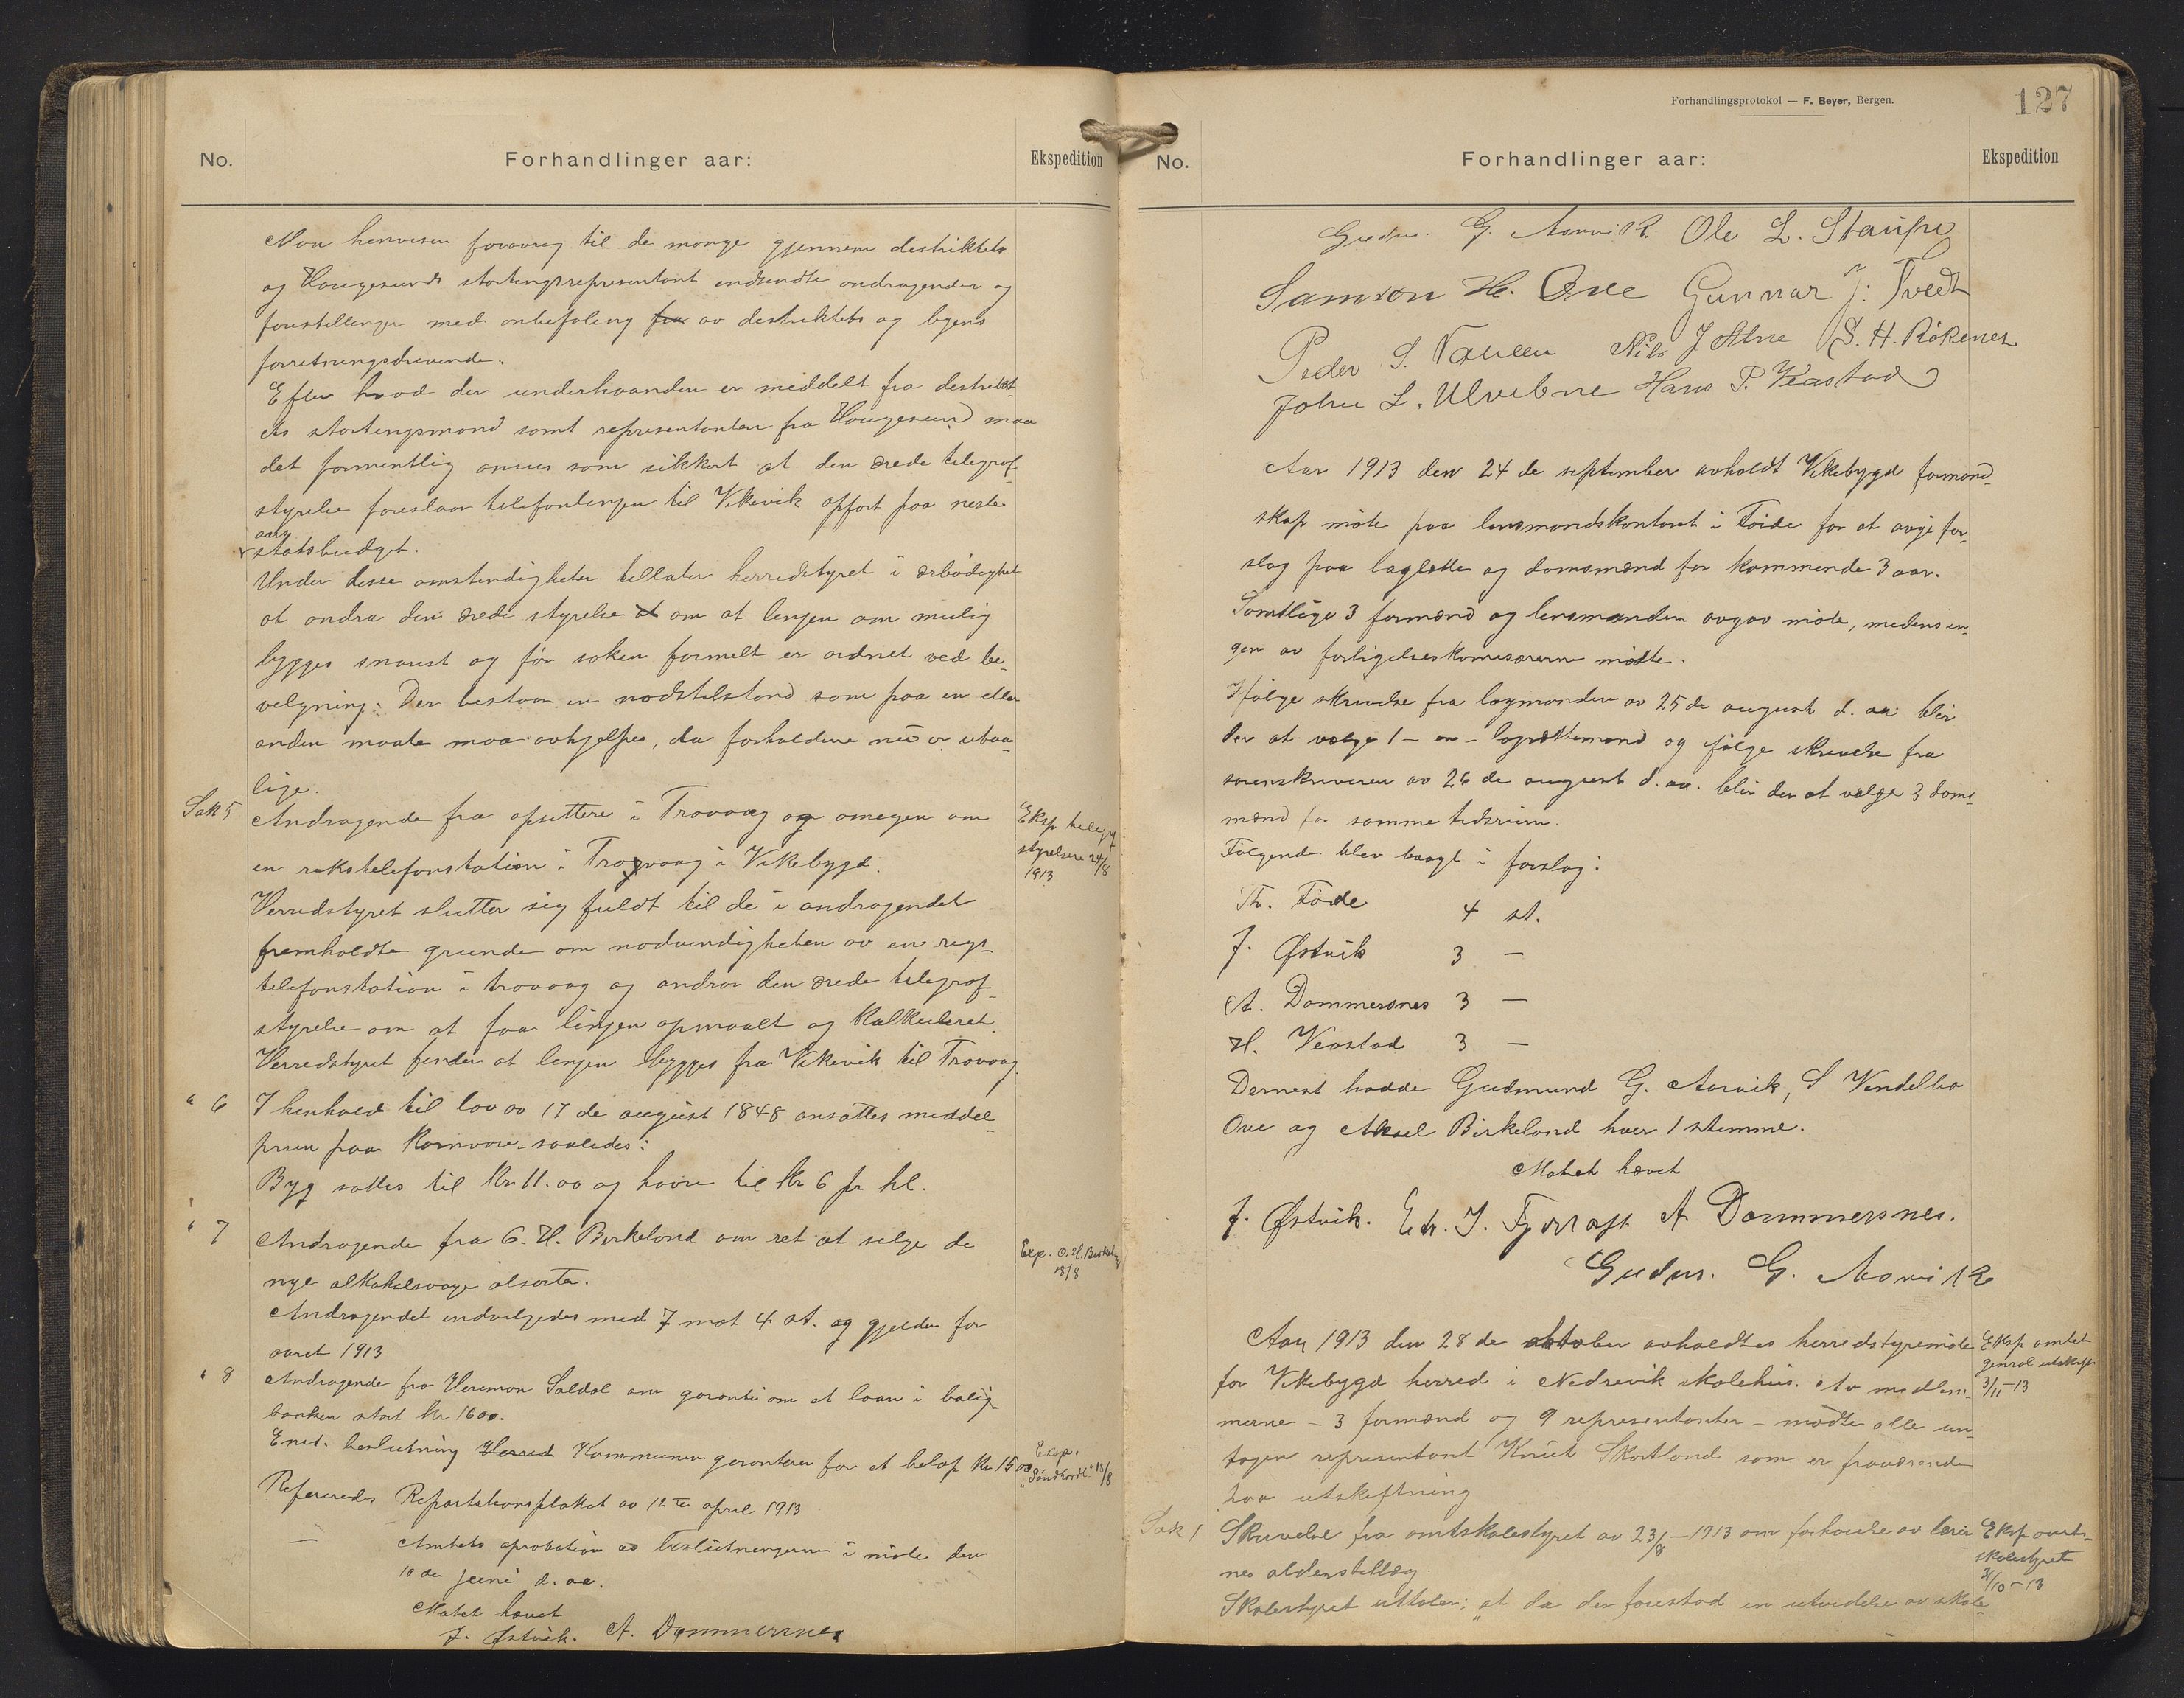 No.
Forhandlinger aar:
Ekspedition
Man henviser forøvrig til de mange gjennem destriktets
og Haugesunds stortingsrepresentant indsendte andragender og
forestillinger med anbefaling fra av destriktets og byens
forretningsdrivende.
Efter hvad der underhaanden er meddelt fra destrikt-
ets stortingsmand samt representanten fra Haugesund maa
det formentlig anses som sikkert at den ærede telegraf
styrelse foreslaar telefonlinjen til Vikevik opført paa neste
aars
statsbudget.
Under disse omstendigheter tillater herredstyret i ærbødighet
at andra den ærede styrelse at om at linjen om mulig
bygges snarest og før saken formelt er ordnet ved be-
vilgning. Der bestaar en nødstilstand som paa en eller
anden maate maa avhjelpes, da forholdene nu er utaa-
lige.
Sak 5
Andragende fra opsittere i Trovaag og omegn om
en rikstelefonstation i Trovaag i Vikebygd.
Eksp telegr
styrelsen 24/8
1913
Herredstyret slutter sig fuldt til de i andragendet
fremholdte grunde om nødvendigheten av en rigs-
telefonstation i trovaag og andrar den ærede telegraf-
styrelse om at faa linjen opmaalt og kalkuleret.
Herredstyret finder at linjen bygges fra Vikevik til Trovaag.
" 6
I henhold til lov av 17 de august 1848 ansattes middel-
prisen paa kornvare saaledes:
Byg sattes til Kr 11.00 og havre til Kr 6 pr hl.
" 7
Andragende fra O. H. Birkeland om ret at selge de
nye alkoholsvage ølsorter.
Exp. O. H. Birkeland
18/8
Andragendet indvilgedes med 7 mot 4 st. og gjelder for
aaret 1913
" 8
Andragende fra Herman Saldal om garanti om et laan i bolig-
banken stort kr 1600.
Enst. beslutning Herred Kommunen garanterer for et beløp kr 1500
Exp.
"Søndhordl" 13/8
Refereredes Repartitionsplakat av 12te april 1913
— Amtets aprobation av beslutningerne i møte den
10 de juni d. aa.
Møtet hævet
J. Østvik. A. Dommersnes
Forhandlingsprotokol — F. Beyer, Bergen.
127
No.
Forhandlinger aar:
Ekspedition
Gudm. G. Aarvik. Ole L. Staupe
Samson H. Ove Gunnar J. Tvedt
Peder S. Nils J S. H. Røkenes
John L. Ulvebne Hans P. Veastad
Aar 1913 den 24 de september avholdt Vikebygd formand-
skap møte paa lensmandskontoret i Førde for at avgi for-
slag paa lagrette og domsmænd for kommende 3 aar.
Samtlige 3 formænd og lensmanden avgav møte, medens in-
gen av forligelseskomisærerne mødte.
Ifølge skrivelse fra lagmanden av 25 de august d. aa. blir
der at velge 1 - en - lagrettemand og ifølge skrivelse fra
sorenskriveren av 26 de august d. aa. blir der at velge 3 doms-
mænd for samme tidsrum.
Følgende blev bragt i forslag:
Th. Førde 4 st.
J. Østvik 3 —
A. Dommersnes 3 —
H. Veastad 3 —
Dernest hadde Gudmund G. Aarvik, S Vindelbo
Ove og Aksel Birkeland hver 1 stemme.
Møtet hævet
J. Østvik. A. Dommersnes.
Gudm. G. Aarvik
Aar 1913 den 28 de oktober avholdtes herredstyremøte
for Vikebygd herred i Nedrevik skolehus. Av medlem-
merne - 3 formænd og 9 representanter - mødte alle un-
tagen representant Knut Skartland som er fraværende
paa utskiftning
Eksp amtet
genral utskift
3/11-13
Sak 1
Skrivelse fra amtskolestyret av 23/8 - 1913 om forhøielse av lærer
nes alderstillæg.
Eksp amts-
skolestyret
31/10-13
Skolestyret uttaler: "at da der forestod en utvidelse av skole-